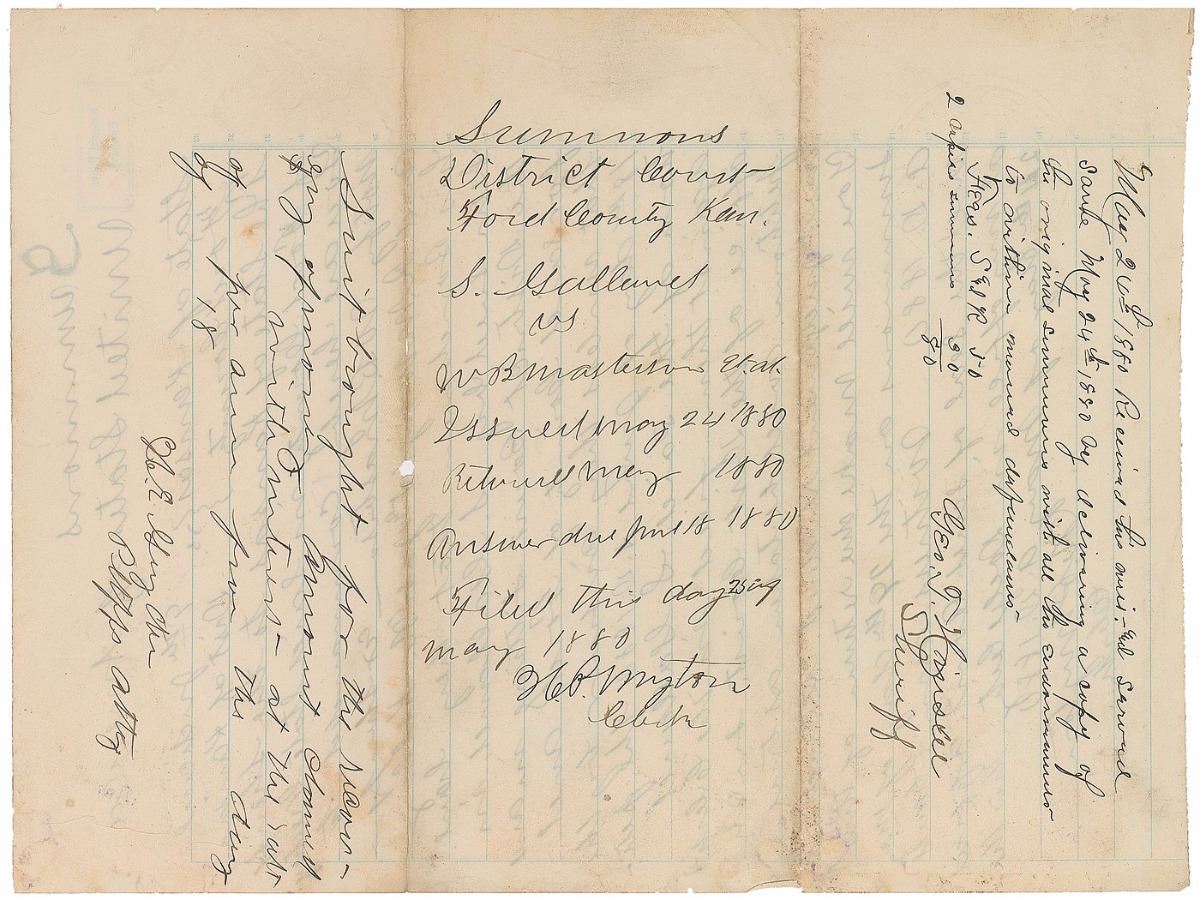 Summons
District Court
Ford County Kan.
S. Gallaned
vs
W B Masterson et.al.
Issued May 24 1880
Returned May 1880
Answer due June 18 1880
Filed this day 25 of
May 1880
H.P. Myton
Clerk
May 24th 1880 Received this writ, and served
same May 24th 1880 by delivering a copy of
the original summons with all the endorsements
to within named defendants
Fees. S & R 50
2 copies summons 30
80
Geo. T. Hinkel
Sheriff
Suit brought for the recov-
ery of money Amount claimed
$ with Interest at the rate
of per ann from the day
of 18
H. E. Gryden
Plffs atty